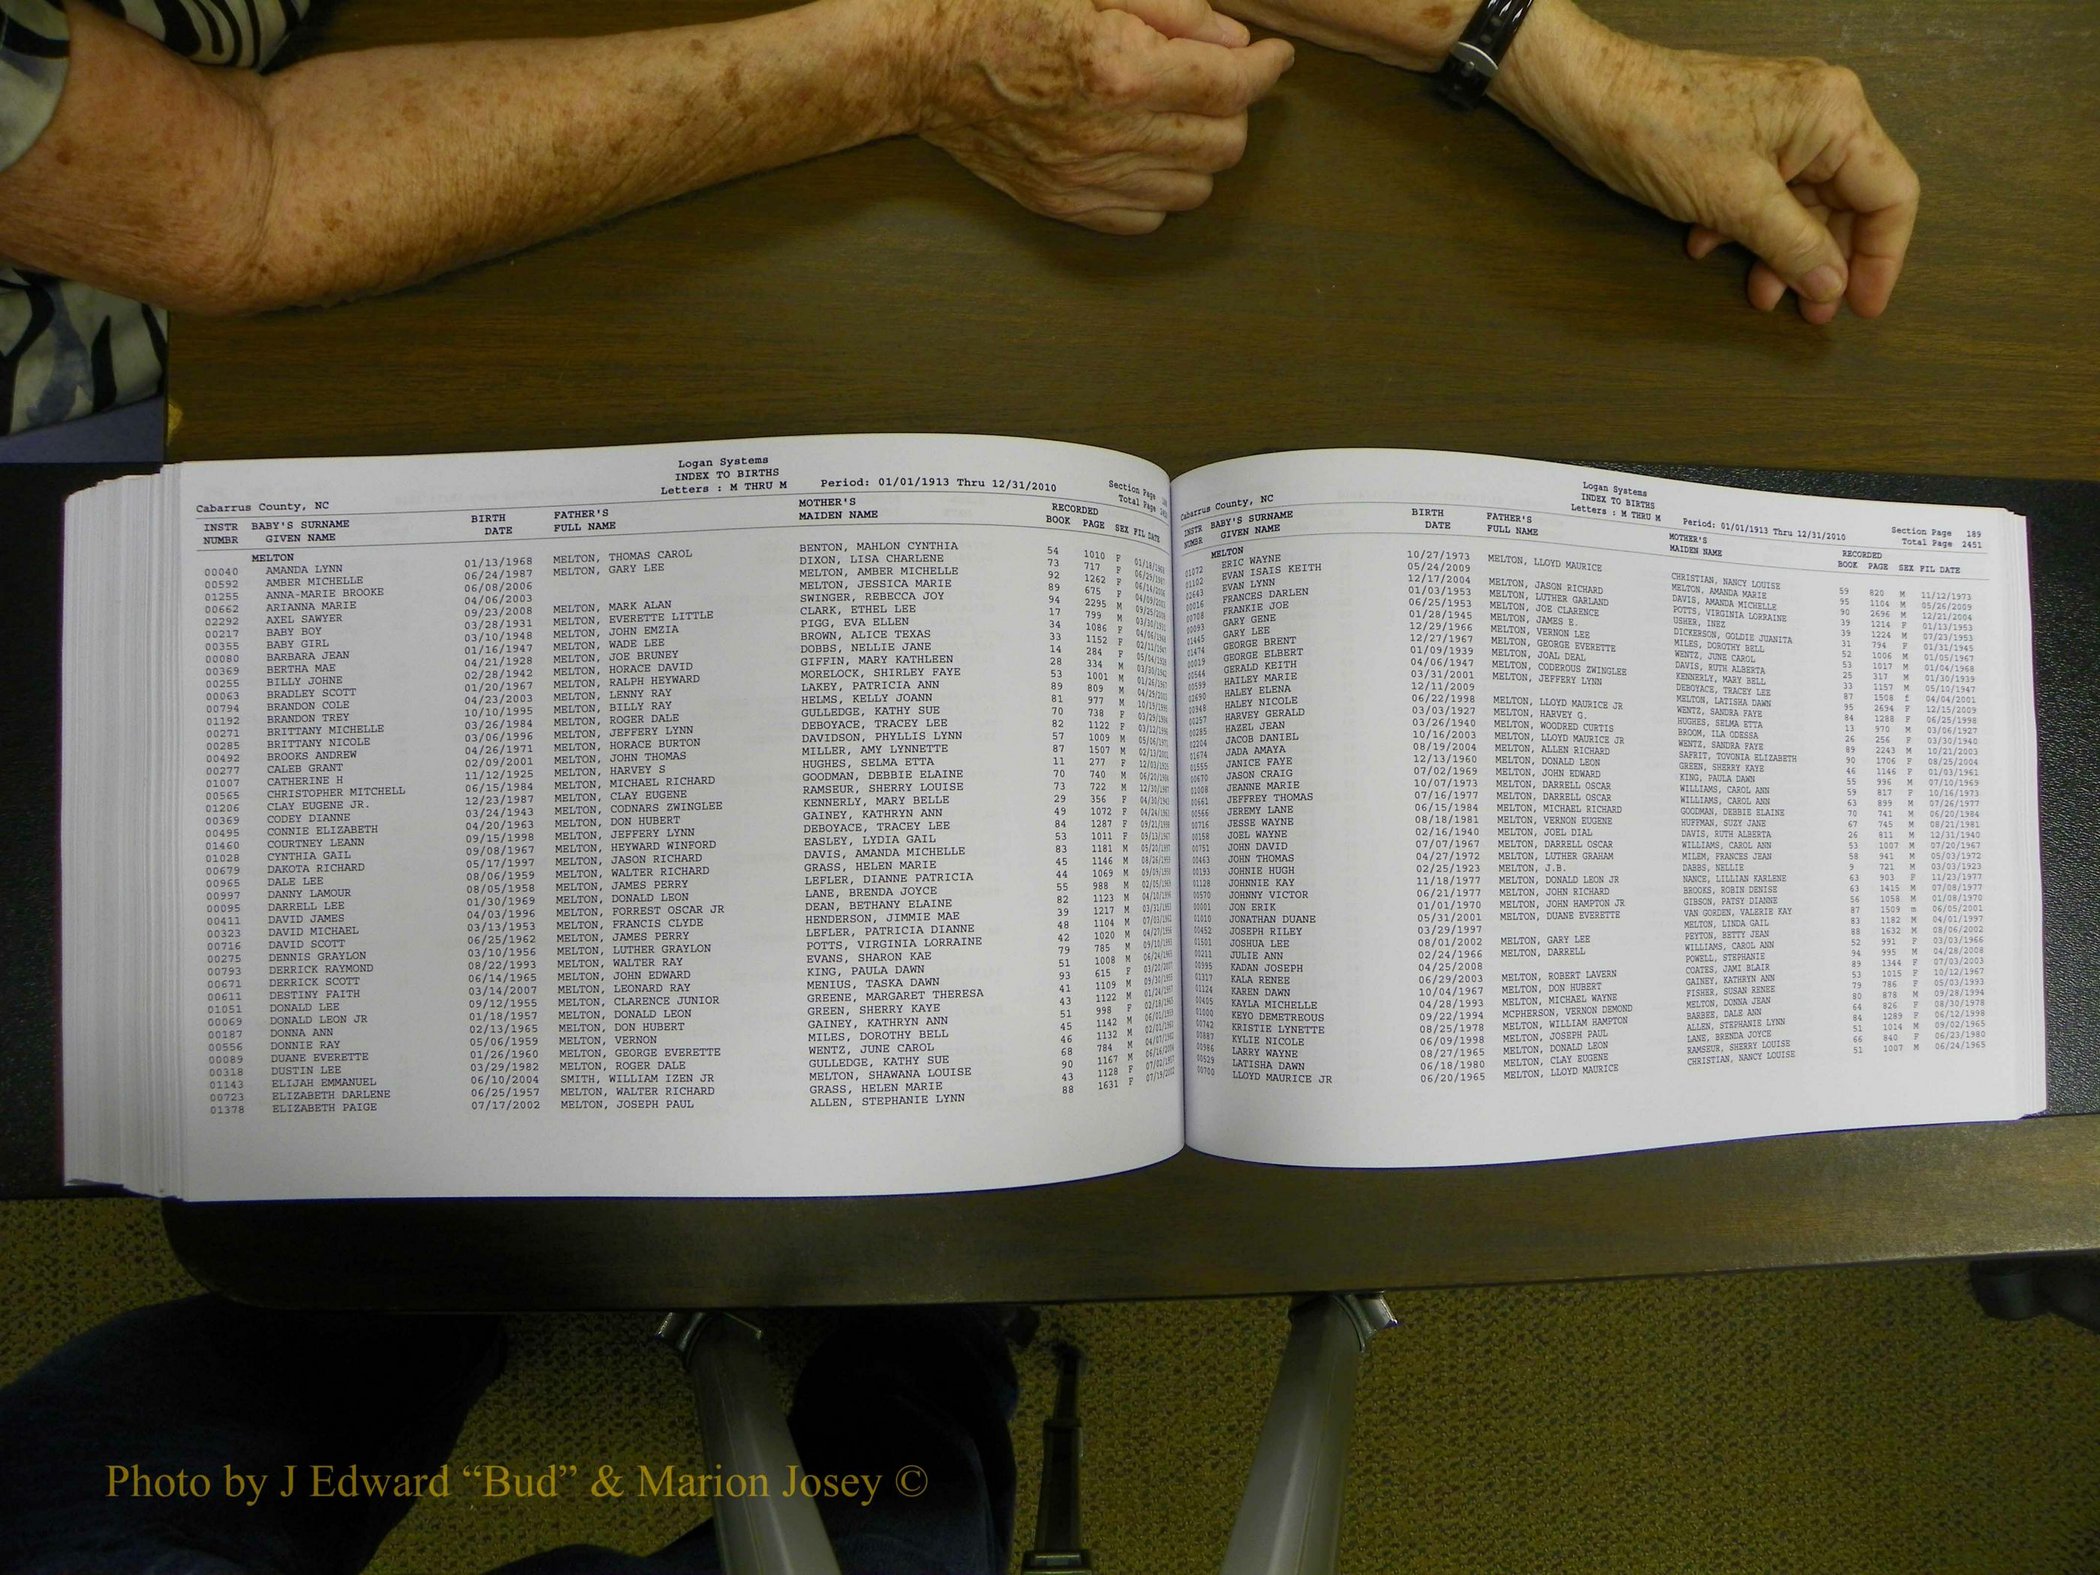 Logan Systems
INDEX TO BIRTHS
Cabarrus County, NC Letters : M THRU M Period: 01/01/1913 Thru 12/31/2010 Section Page
Total Page
INSTR BABY'S SURNAME BIRTH FATHER'S MOTHER'S RECORDED
NUMBR GIVEN NAME DATE FULL NAME MAIDEN NAME BOOK PAGE SEX FIL DATE
MELTON
00040 AMANDA LYNN 01/13/1968 MELTON, THOMAS CAROL BENTON, MAHLON CYNTHIA 54 1010 F 01/18/1968
00592 AMBER MICHELLE 06/24/1987 MELTON, GARY LEE DIXON, LISA CHARLENE 73 717 F 06/29/1987
01255 ANNA-MARIE BROOKE 06/08/2006 MELTON, AMBER MICHELLE 92 1262 F 06/14/2006
00662 ARIANNA MARIE 04/06/2003 MELTON, JESSICA MARIE 89 675 F 04/09/2003
02292 AXEL SAWYER 09/23/2008 MELTON, MARK ALAN SWINGER, REBECCA JOY 94 2295 M 09/25/2008
00217 BABY BOY 03/28/1931 MELTON, EVERETTE LITTLE CLARK, ETHEL LEE 17 799 M 03/30/1931
00355 BABY GIRL 03/10/1948 MELTON, JOHN EMZIA PIGG, EVA ELLEN 34 1086 F 04/06/1948
00080 BARBARA JEAN 01/16/1947 MELTON, WADE LEE BROWN, ALICE TEXAS 33 1152 F 02/11/1947
00369 BERTHA MAE 04/21/1928 MELTON, JOE BRUNEY DOBBS, NELLIE JANE 14 284 F 05/04/1928
00255 BILLY JOHNE 02/28/1942 MELTON, HORACE DAVID GIFFIN, MARY KATHLEEN 28 334 M 03/30/1942
00063 BRADLEY SCOTT 01/20/1967 MELTON, RALPH HEYWARD MORELOCK, SHIRLEY FAYE 53 1001 M 01/26/1967
00794 BRANDON COLE 04/23/2003 MELTON, LENNY RAY LAKEY, PATRICIA ANN 89 809 M 04/29/2003
01192 BRANDON TREY 10/10/1995 MELTON, BILLY RAY HELMS, KELLY JOANN 81 977 M 10/19/1995
00271 BRITTANY MICHELLE 03/26/1984 MELTON, ROGER DALE GULLEDGE, KATHY SUE 70 738 F 03/29/1984
00285 BRITTANY NICOLE 03/06/1996 MELTON, JEFFERY LYNN DEBOYACE, TRACEY LEE 82 1122 F 03/12/1996
00492 BROOKS ANDREW 04/26/1971 MELTON, HORACE BURTON DAVIDSON, PHYLLIS LYNN 57 1009 M 05/06/1971
00277 CALEB GRANT 02/09/2001 MELTON, JOHN THOMAS MILLER, AMY LYNNETTE 87 1507 M 02/13/2001
01007 CATHERINE H 11/12/1925 MELTON, HARVEY S HUGHES, SELMA ETTA 11 277 F 12/03/1925
00565 CHRISTOPHER MITCHELL 06/15/1984 MELTON, MICHAEL RICHARD GOODMAN, DEBBIE ELAINE 70 740 M 06/20/1984
01206 CLAY EUGENE JR. 12/23/1987 MELTON, CLAY EUGENE RAMSEUR, SHERRY LOUISE 73 722 M 12/30/1987
00369 CODEY DIANNE 03/24/1943 MELTON, CODNARS ZWINGLEE KENNERLY, MARY BELLE 29 356 F 04/30/1943
00495 CONNIE ELIZABETH 04/20/1963 MELTON, DON HUBERT GAINEY, KATHRYN ANN 49 1072 F 04/24/1963
01460 COURTNEY LEANN 09/15/1998 MELTON, JEFFERY LYNN DEBOYACE, TRACEY LEE 84 1287 F 09/21/1998
01028 CYNTHIA GAIL 09/08/1967 MELTON, HEYWARD WINFORD EASLEY, LYDIA GAIL 53 1011 F 09/13/1967
00679 DAKOTA RICHARD 05/17/1997 MELTON, JASON RICHARD DAVIS, AMANDA MICHELLE 83 1181 M 05/20/1997
00965 DALE LEE 08/06/1959 MELTON, WALTER RICHARD GRASS, HELEN MARIE 45 1146 M 08/26/1959
00997 DANNY LAMOUR 08/05/1958 MELTON, JAMES PERRY LEFLER, DIANNE PATRICIA 44 1069 M 09/09/1958
00095 DARRELL LEE 01/30/1969 MELTON, DONALD LEON LANE, BRENDA JOYCE 55 988 M 02/05/1969
00411 DAVID JAMES 04/03/1996 MELTON, FORREST OSCAR JR DEAN, BETHANY ELAINE 82 1123 M 04/10/1996
00323 DAVID MICHAEL 03/13/1953 MELTON, FRANCIS CLYDE HENDERSON, JIMMIE MAE 39 1217 M 03/31/1953
00716 DAVID SCOTT 06/25/1962 MELTON, JAMES PERRY LEFLER, PATRICIA DIANNE 48 1104 M 07/03/1962
00275 DENNIS GRAYLON 03/10/1956 MELTON, LUTHER GRAYLON POTTS, VIRGINIA LORRAINE 42 1020 M 04/27/1956
00793 DERRICK RAYMOND 08/22/1993 MELTON, WALTER RAY EVANS, SHARON KAE 79 785 M 09/10/1993
00671 DERRICK SCOTT 06/14/1965 MELTON, JOHN EDWARD KING, PAULA DAWN 51 1008 M 06/24/1965
00611 DESTINY FAITH 03/14/2007 MELTON, LEONARD RAY MENIUS, TASKA DAWN 93 615 F 03/20/2007
01051 DONALD LEE 09/12/1955 MELTON, CLARENCE JUNIOR GREENE, MARGARET THERESA 41 1109 M 09/30/1955
00069 DONALD LEON JR 01/18/1957 MELTON, DONALD LEON GREEN, SHERRY KAYE 43 1122 M 01/24/1957
00187 DONNA ANN 02/13/1965 MELTON, DON HUBERT GAINEY, KATHRYN ANN 51 998 F 02/18/1965
00556 DONNIE RAY 05/06/1959 MELTON, VERNON MILES, DOROTHY BELL 45 1142 M 06/01/1959
00089 DUANE EVERETTE 01/26/1960 MELTON, GEORGE EVERETTE WENTZ, JUNE CAROL 46 1132 M 02/01/1960
00318 DUSTIN LEE 03/29/1982 MELTON, ROGER DALE GULLEDGE, KATHY SUE 68 784 M 04/07/1982
01143 ELIJAH EMMANUEL 06/10/2004 SMITH, WILLIAM IZEN JR MELTON, SHAWANA LOUISE 90 1167 M 06/16/2004
00723 ELIZABETH DARLENE 06/25/1957 MELTON, WALTER RICHARD GRASS, HELEN MARIE 43 1128 F 07/02/1957
01378 ELIZABETH PAIGE 07/17/2002 MELTON, JOSEPH PAUL ALLEN, STEPHANIE LYNN 88 1631 F 07/19/2002
Logan Systems
INDEX TO BIRTHS
Cabarrus County, NC Letters : M THRU M Period: 01/01/1913 Thru 12/31/2010 Section Page 189
Total Page 2451
INSTR BABY'S SURNAME BIRTH FATHER'S MOTHER'S RECORDED
NUMBR GIVEN NAME DATE FULL NAME MAIDEN NAME BOOK PAGE SEX FIL DATE
MELTON
01072 ERIC WAYNE 10/27/1973 MELTON, LLOYD MAURICE CHRISTIAN, NANCY LOUISE 59 820 M 11/12/1973
01102 EVAN ISAIS KEITH 05/24/2009 MELTON, AMANDA MARIE 95 1104 M 05/26/2009
02643 EVAN LYNN 12/17/2004 MELTON, JASON RICHARD DAVIS, AMANDA MICHELLE 90 2696 M 12/21/2004
00016 FRANCES DARLEN 01/03/1953 MELTON, LUTHER GARLAND POTTS, VIRGINIA LORRAINE 39 1214 F 01/13/1953
00708 FRANKIE JOE 06/25/1953 MELTON, JOE CLARENCE USHER, INEZ 39 1224 M 07/23/1953
00093 GARY GENE 01/28/1945 MELTON, JAMES E. DICKERSON, GOLDIE JUANITA 31 794 F 01/31/1945
01445 GARY LEE 12/29/1966 MELTON, VERNON LEE MILES, DOROTHY BELL 52 1006 M 01/05/1967
01474 GEORGE BRENT 12/27/1967 MELTON, GEORGE EVERETTE WENTZ, JUNE CAROL 53 1017 M 01/04/1968
00019 GEORGE ELBERT 01/09/1939 MELTON, JOAL DEAL DAVIS, RUTH ALBERTA 25 317 M 01/30/1939
00544 GERALD KEITH 04/06/1947 MELTON, CODEROUS ZWINGLEE KENNERLY, MARY BELL 33 1157 M 05/10/1947
00599 HAILEY MARIE 03/31/2001 MELTON, JEFFERY LYNN DEBOYACE, TRACEY LEE 87 1508 f 04/04/2001
02690 HALEY ELENA 12/11/2009 MELTON, LATISHA DAWN 95 2694 F 12/15/2009
00948 HALEY NICOLE 06/22/1998 MELTON, LLOYD MAURICE JR WENTZ, SANDRA FAYE 84 1288 F 06/25/1998
00257 HARVEY GERALD 03/03/1927 MELTON, HARVEY G. HUGHES, SELMA ETTA 13 970 M 03/06/1927
00285 HAZEL JEAN 03/26/1940 MELTON, WOODRED CURTIS BROOM, ILA ODESSA 26 256 F 03/30/1940
02204 JACOB DANIEL 10/16/2003 MELTON, LLOYD MAURICE JR WENTZ, SANDRA FAYE 89 2243 M 10/21/2003
01674 JADA AMAYA 08/19/2004 MELTON, ALLEN RICHARD SAFRIT, TOVONIA ELIZABETH 90 1706 F 08/25/2004
01555 JANICE FAYE 12/13/1960 MELTON, DONALD LEON GREEN, SHERRY KAYE 46 1146 F 01/03/1961
00670 JASON CRAIG 07/02/1969 MELTON, JOHN EDWARD KING, PAULA DAWN 55 996 M 07/10/1969
01008 JEANNE MARIE 10/07/1973 MELTON, DARRELL OSCAR WILLIAMS, CAROL ANN 59 817 F 10/16/1973
00661 JEFFREY THOMAS 07/16/1977 MELTON, DARRELL OSCAR WILLIAMS, CAROL ANN 63 899 M 07/26/1977
00566 JEREMY LANE 06/15/1984 MELTON, MICHAEL RICHARD GOODMAN, DEBBIE ELAINE 70 741 M 06/20/1984
00716 JESSE WAYNE 08/18/1981 MELTON, VERNON EUGENE HUFFMAN, SUZY JANE 67 745 M 08/21/1981
00158 JOEL WAYNE 02/16/1940 MELTON, JOEL DIAL DAVIS, RUTH ALBERTA 26 811 M 12/31/1940
00751 JOHN DAVID 07/07/1967 MELTON, DARRELL OSCAR WILLIAMS, CAROL ANN 53 1007 M 07/20/1967
00463 JOHN THOMAS 04/27/1972 MELTON, LUTHER GRAHAM MILEM, FRANCES JEAN 58 941 M 05/03/1972
00193 JOHNIE HUGH 02/25/1923 MELTON, J.B. DABBS, NELLIE 9 721 M 03/03/1923
01128 JOHNNIE KAY 11/18/1977 MELTON, DONALD LEON JR NANCE, LILLIAN KARLENE 63 903 F 11/23/1977
00570 JOHNNY VICTOR 06/21/1977 MELTON, JOHN RICHARD BROOKS, ROBIN DENISE 63 1415 M 07/08/1977
00001 JON ERIK 01/01/1970 MELTON, JOHN HAMPTON JR GIBSON, PATSY DIANNE 56 1058 M 01/08/1970
01010 JONATHAN DUANE 05/31/2001 MELTON, DUANE EVERETTE VAN GORDEN, VALERIE KAY 87 1509 m 06/05/2001
00452 JOSEPH RILEY 03/29/1997 MELTON, LINDA GAIL 83 1182 M 04/01/1997
01501 JOSHUA LEE 08/01/2002 MELTON, GARY LEE PEYTON, BETTY JEAN 88 1632 M 08/06/2002
00211 JULIE ANN 02/24/1966 MELTON, DARRELL WILLIAMS, CAROL ANN 52 991 F 03/03/1966
00995 KADAN JOSEPH 04/25/2008 POWELL, STEPHANIE 94 995 M 04/28/2008
01317 KALA RENEE 06/29/2003 MELTON, ROBERT LAVERN COATES, JAMI BLAIR 89 1344 F 07/03/2003
01124 KAREN DAWN 10/04/1967 MELTON, DON HUBERT GAINEY, KATHRYN ANN 53 1015 F 10/12/1967
00405 KAYLA MICHELLE 04/28/1993 MELTON, MICHAEL WAYNE FISHER, SUSAN RENEE 79 786 F 05/03/1993
01000 KEYO DEMETREOUS 09/22/1994 MCPHERSON, VERNON DEMOND MELTON, DONNA JEAN 80 878 M 09/28/1994
00742 KRISTIE LYNETTE 08/25/1978 MELTON, WILLIAM HAMPTON BARBEE, DALE ANN 64 826 F 08/30/1978
00887 KYLIE NICOLE 06/09/1998 MELTON, JOSEPH PAUL ALLEN, STEPHANIE LYNN 84 1289 F 06/12/1998
00986 LARRY WAYNE 08/27/1965 MELTON, DONALD LEON LANE, BRENDA JOYCE 51 1014 M 09/02/1965
00529 LATISHA DAWN 06/18/1980 MELTON, CLAY EUGENE RAMSEUR, SHERRY LOUISE 66 840 F 06/23/1980
00700 LLOYD MAURICE JR 06/20/1965 MELTON, LLOYD MAURICE CHRISTIAN, NANCY LOUISE 51 1007 M 06/24/1965
Photo by J Edward “Bud” & Marion Josey ©